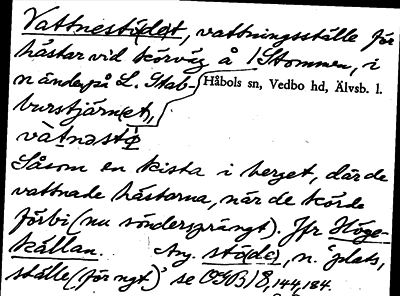 Vattnestö(de)t, vattningsställe för
hästar vid körväg å /Stommen, i
n änden på L. Stab-
Håbols sn, Vedbo hd, Älvsb. l.
burstjärnet,
vàtnəstǿ
Såsom en kista i berget, där de
vattnade hästarna, när de körde
förbi (nu söndersprängt). Jfr Höge-
källan. Ang. stö(de), n. 'plats,
ställe (för ngt)' se OGB 18, 144, 184.